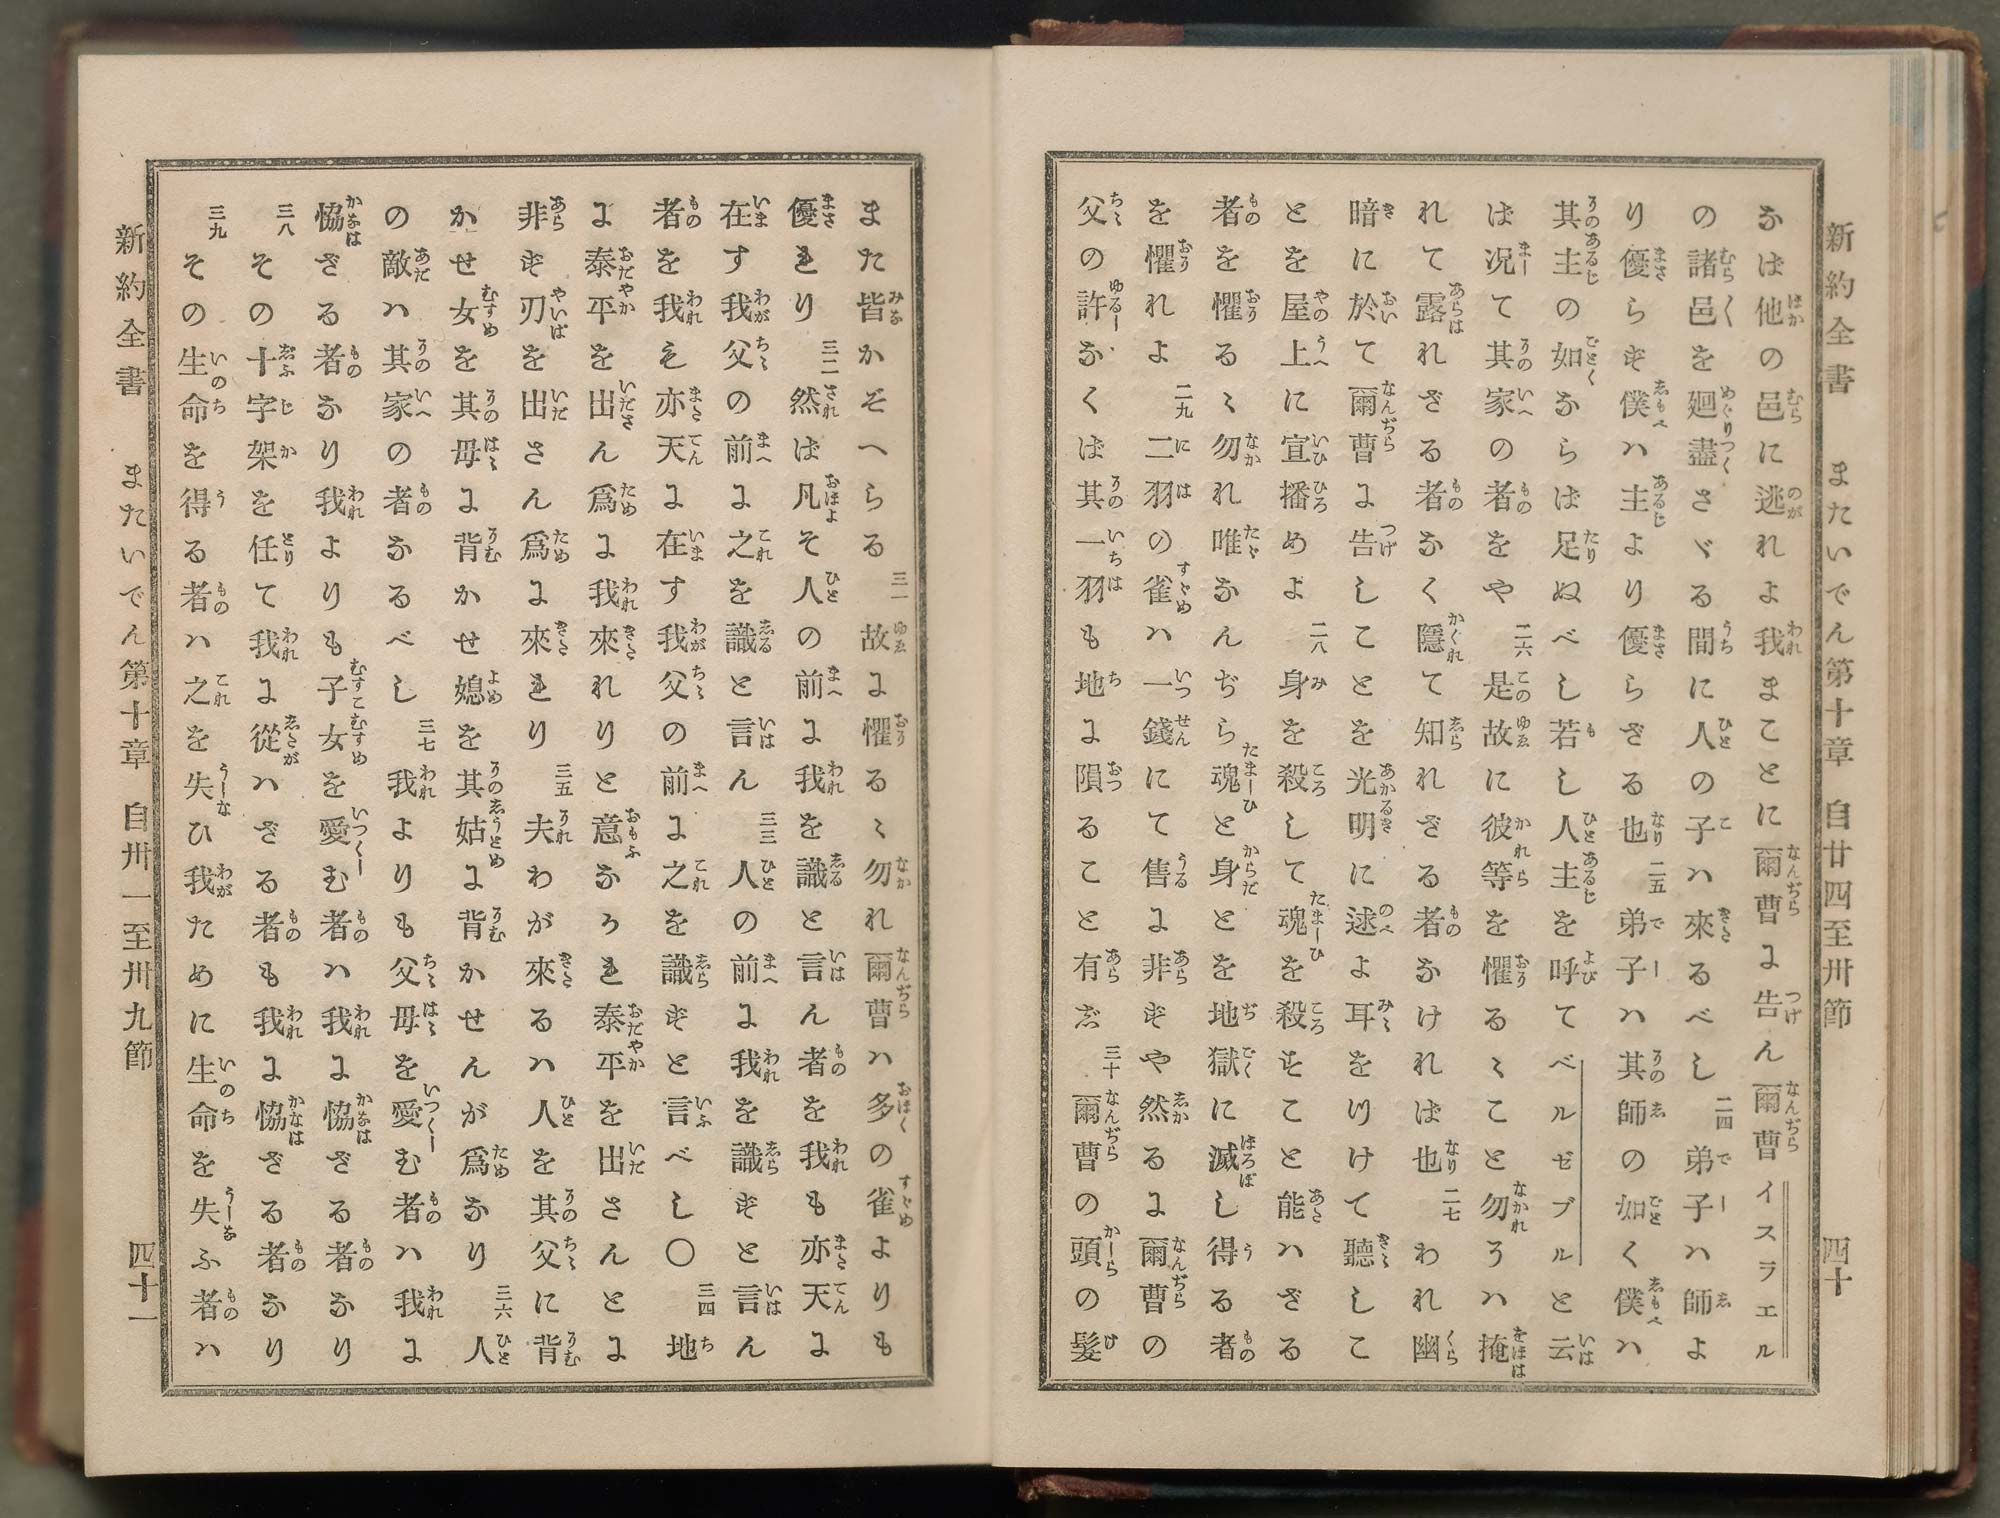 新約全書 またいでん第十章 自廿四至卅節 四十
なば他の邑に逃れよ我まことに爾曹に告ん爾曹イスラエル
の諸邑を廻盡さゞる間に人の子ハ來るべし 二四 弟子ハ師よ
り優らず僕ハ主より優らざる也 二五 弟子ハ其師の如く僕ハ
其主の如ならば足ぬべし若し人主を呼てベルゼブルと云
ば况て其家の者をや 二六 是故に彼等を懼るゝこと勿れそハ掩
れて露れざる者なく隱て知れざる者なければ也 二七 われ幽
暗に於て爾曹に告しことを光明に述よ耳をりけて聽しこ
とを屋上に宣播めよ 二八 身を殺して魂を殺すこと能ハざる
者を懼るゝ勿れ唯なんぢら魂と身とを地獄に滅し得る者
を懼れよ 二九 二羽の雀ハ一錢にて售に非ずや然るに爾曹の
父の許なくば其一羽も地に隕ること有じ 三十 爾曹の頭の髮
また皆かぞへらる 三一 故に懼るゝ勿れ爾曹ハ多の雀よりも
優れり 三二 然ば凡そ人の前に我を識と言ん者を我も亦天に
在す我父の前に之を識と言ん 三三 人の前に我を識ずと言ん
者を我も亦天に在す我父の前に之を識ずと言べし〇 三四 地
に泰平を出ん爲に我來れりと意なかれ泰平を出さんとに
非ず刃を出さん爲に來れり 三五 夫わが來るハ人を其父に背
かせ女を其母に背かせ媳を其姑に背かせんが爲なり 三六 人
の敵ハ其家の者なるべし 三七 我よりも父母を愛む者ハ我に
恊ざる者なり我よりも子女を愛む者ハ我に恊ざる者なり
三八 その十字架を任て我に從ハざる者も我に恊ざる者なり
三九 その生命を得る者ハ之を失ひ我ために生命を失ふ者ハ
新約全書 またいでん第十章 自卅一至卅九節 四十一